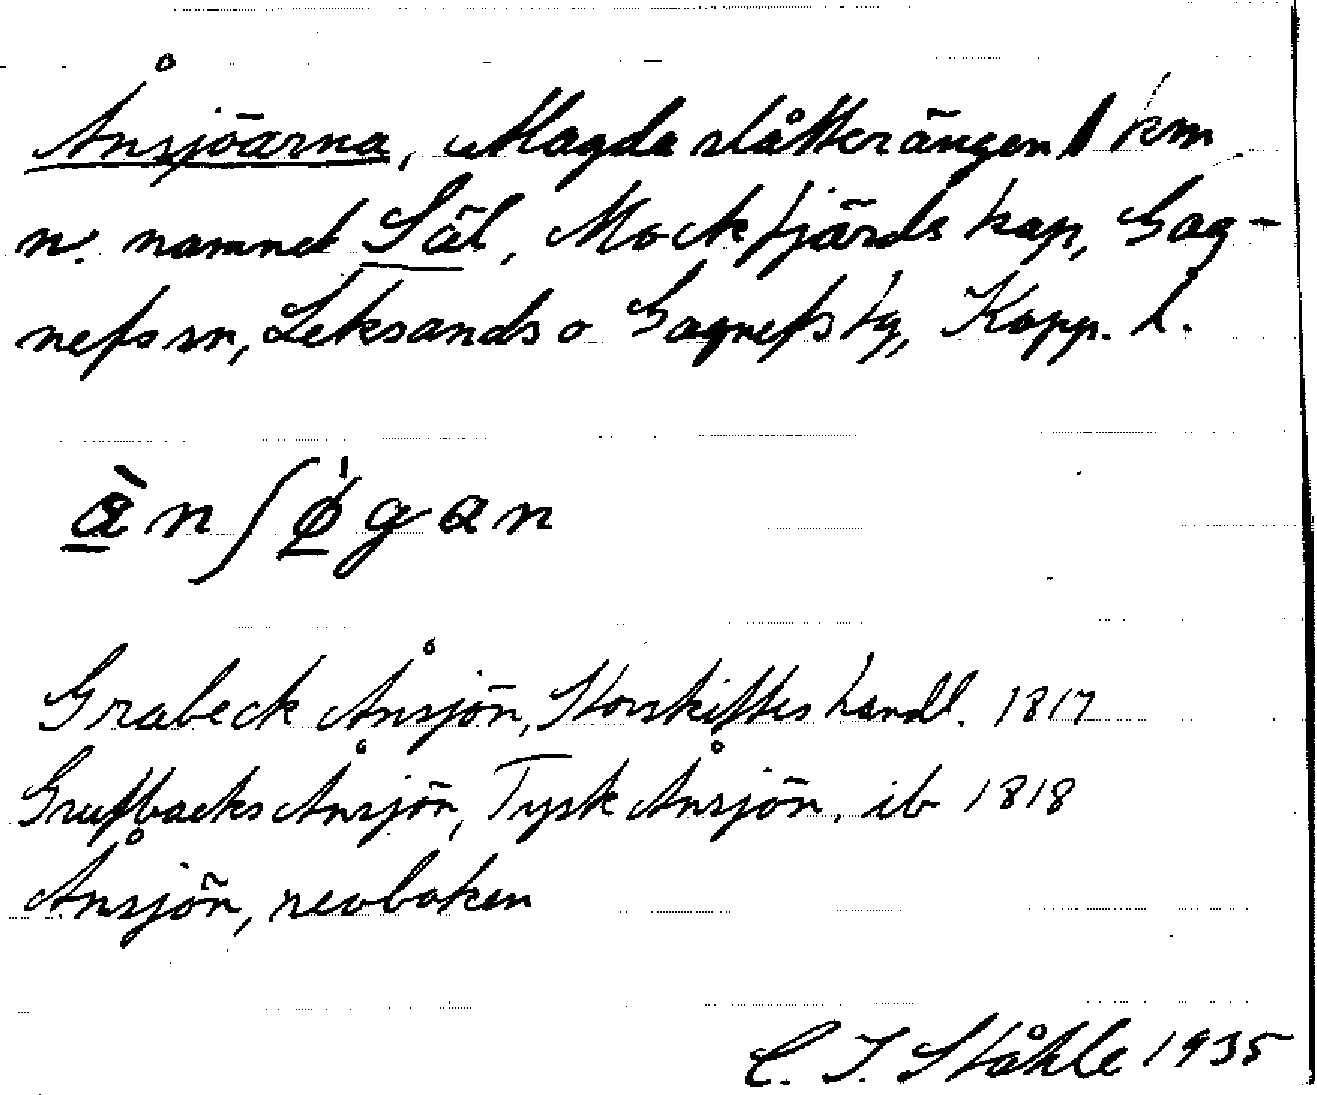 Ånsjöarna, utlagda slåtterängen 1 km
n. namnet Säl, Mockfjärds kap, Gag-
nefs sn, Leksands o Gagnefs tg, Kopp. l.
ànʃø̀gan
Grabeck Ånsjön, Storskifteshandl. 1817
Grufbacks Ånsjön, Tysk Ånsjön, ib 1818
Ånsjön, revboken
C. I. Ståhle 1935